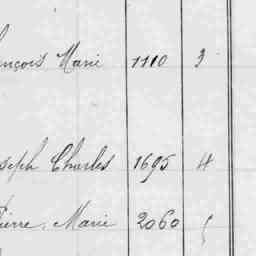 ançois Marie 1110 3
oseph Charles 1695 4
Pierre Marie 2060 5